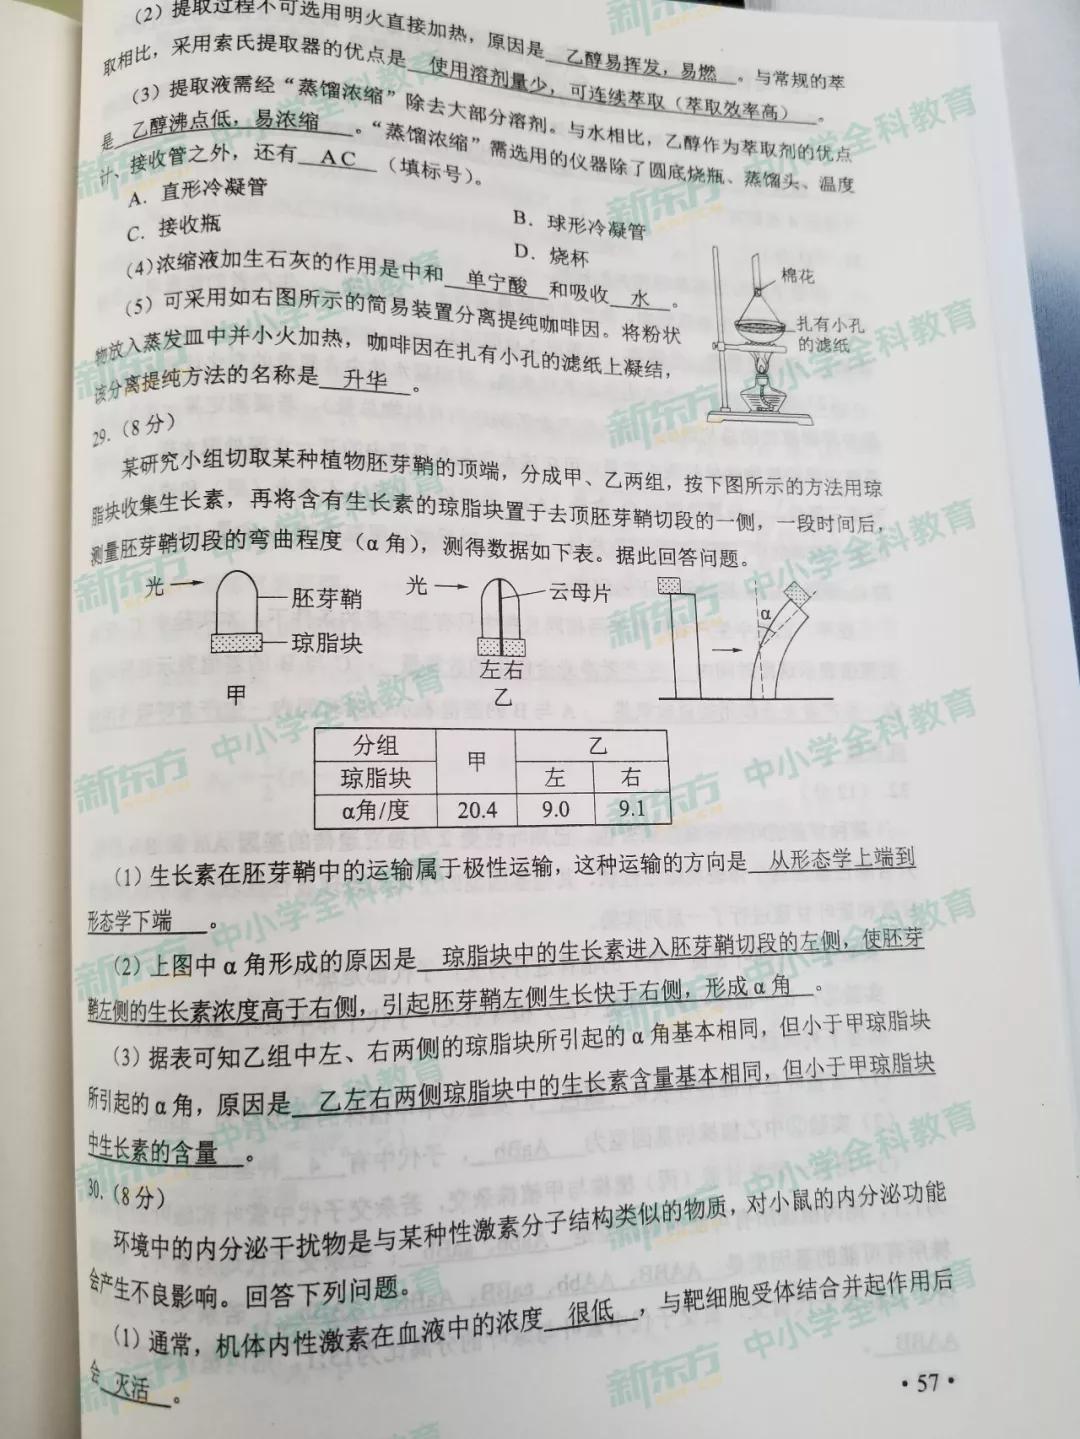 (2) 提取过程不可选用明火直接加热，原因是 乙醇易挥发，易燃 。与常规的萃
取相比，采用索氏提取器的优点是 使用溶剂量少，可连续萃取（萃取效率高） 。
(3) 提取液需经“蒸馏浓缩”除去大部分溶剂。与水相比，乙醇作为萃取剂的优点
是 乙醇沸点低，易浓缩 。“蒸馏浓缩”需选用的仪器除了圆底烧瓶、蒸馏头、温度
计、接收管之外，还有 AC （填标号）。
A. 直形冷凝管
B. 球形冷凝管
C. 接收瓶
D. 烧杯
(4)浓缩液加生石灰的作用是中和 单宁酸 和吸收 水 。
(5) 可采用如右图所示的简易装置分离提纯咖啡因。将粉状
物放入蒸发皿中并小火加热，咖啡因在扎有小孔的滤纸上凝结，
该分离提纯方法的名称是 升华 。
棉花
扎有小孔
的滤纸
29.（8分）
某研究小组切取某种植物胚芽鞘的顶端，分成甲、乙两组，按下图所示的方法用琼
脂块收集生长素，再将含有生长素的琼脂块置于去顶胚芽鞘切段的一侧，一段时间后，
测量胚芽鞘切段的弯曲程度（α角），测得数据如下表。据此回答问题。
光
胚芽鞘
琼脂块
甲
光
云母片
左右
乙
α
分组 甲 乙
琼脂块 左 右
α角/度 20.4 9.0 9.1
(1) 生长素在胚芽鞘中的运输属于极性运输，这种运输的方向是 从形态学上端到
形态学下端 。
(2) 上图中α角形成的原因是 琼脂块中的生长素进入胚芽鞘切段的左侧，使胚芽
鞘左侧的生长素浓度高于右侧，引起胚芽鞘左侧生长快于右侧，形成α角 。
(3) 据表可知乙组中左、右两侧的琼脂块所引起的α角基本相同，但小于甲琼脂块
所引起的α角，原因是 乙左右两侧琼脂块中的生长素含量基本相同，但小于甲琼脂块
中生长素的含量 。
30.（8分）
环境中的内分泌干扰物是与某种性激素分子结构类似的物质，对小鼠的内分泌功能
会产生不良影响。回答下列问题。
(1) 通常，机体内性激素在血液中的浓度 很低 ，与靶细胞受体结合并起作用后
会 灭活 。
·57·
新东方 中小学全科教育